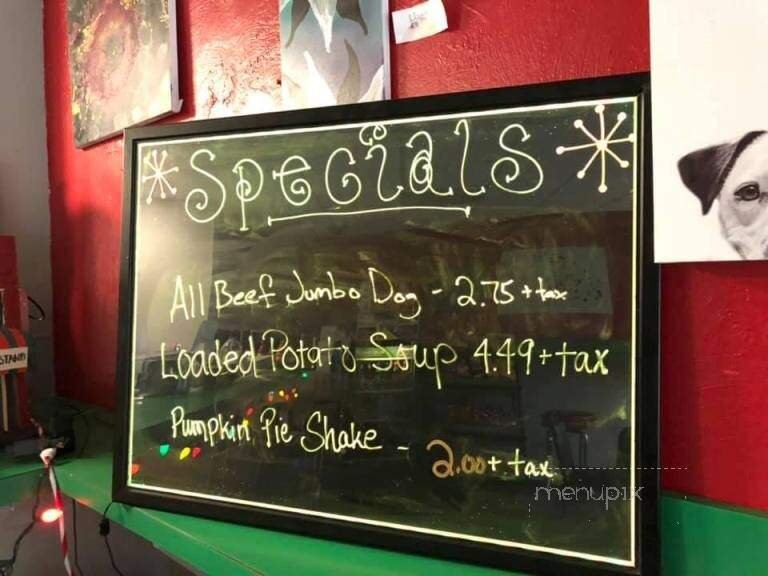 Specials
All Beef Jumbo Dog - 2.75 + tax
Loaded Potato Soup 4.49 + tax
Pumpkin Pie Shake - 2.00 + tax
menupix
STAND